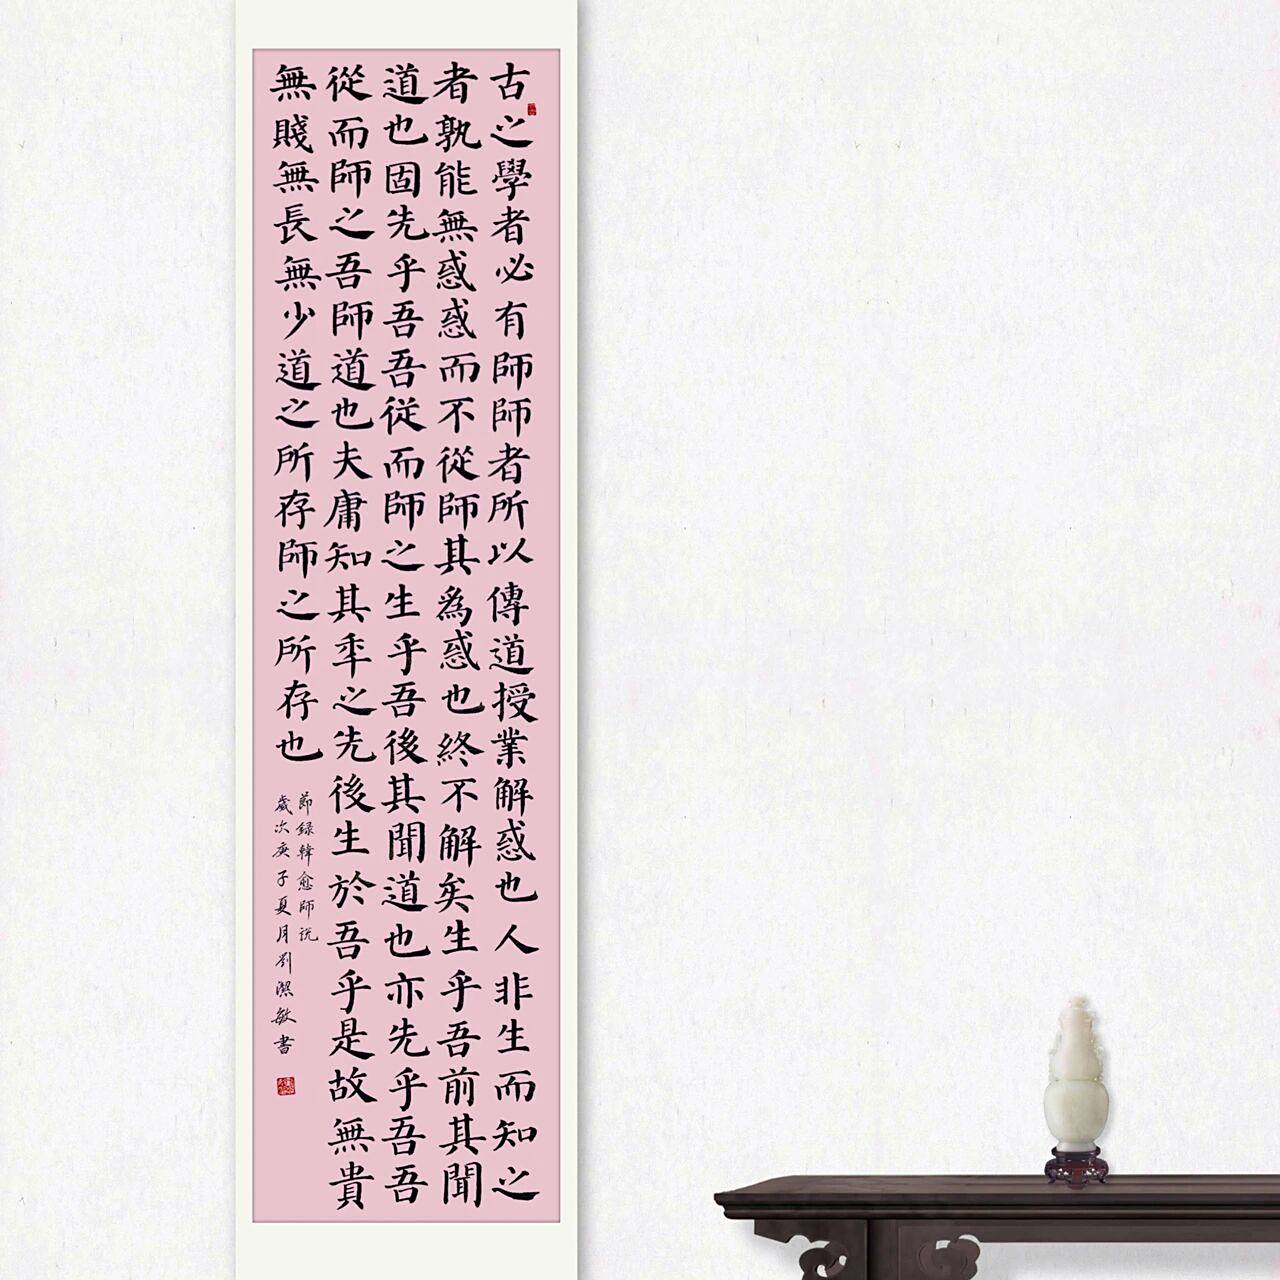 古之學者必有師師者所以傳道授業解惑也人非生而知之
者孰能無惑惑而不從師其為惑也終不解矣生乎吾前其聞
道也固先乎吾吾從而師之生乎吾後其聞道也亦先乎吾吾
從而師之吾師道也夫庸知其年之先後生於吾乎是故無貴
無賤無長無少道之所存師之所存也
節録韓愈師說
歲次庚子夏月劉潔敏書